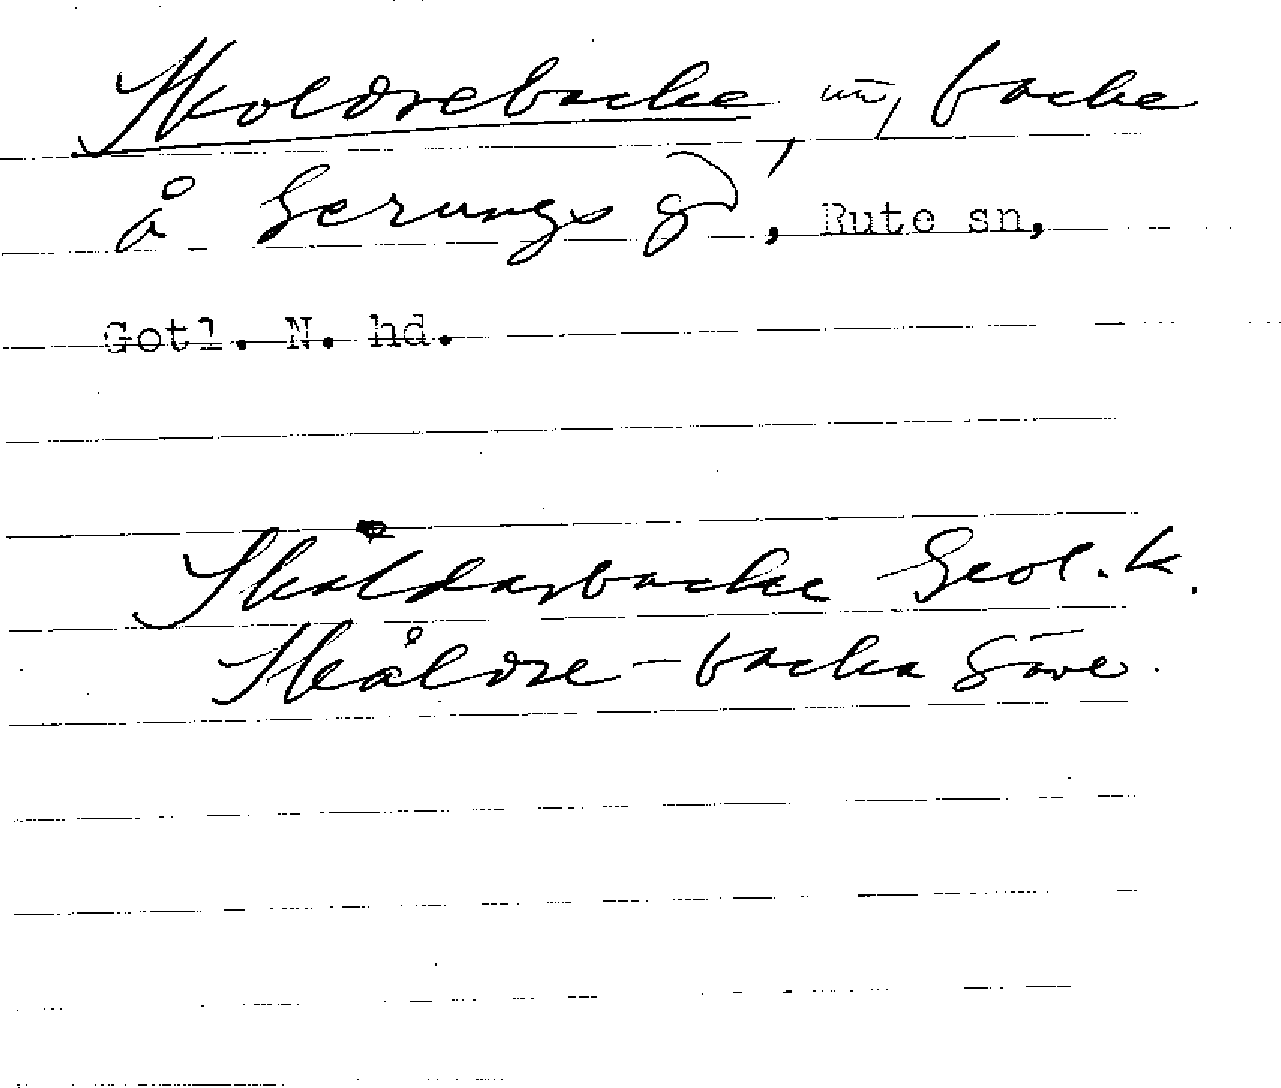 Skoldrebacke, backe
å Gerungs gd, Rute sn,
Gotl. N. hd.
Skåldarbacke Geol. k.
Skåldre-backa Säve.